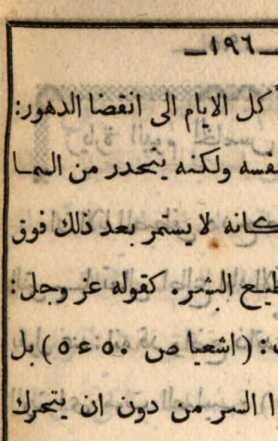 ـ١٩٦ـ
كل الايام الى انقضا الدهور:
نفسه ولكنه يتحدر من السما
كانه لا يستمر بعد ذلك فوق
البشر. كقوله عز وجل:
: (اشعيا ص ٥٠ ع ٥) بل
السر من دون ان يتحرك